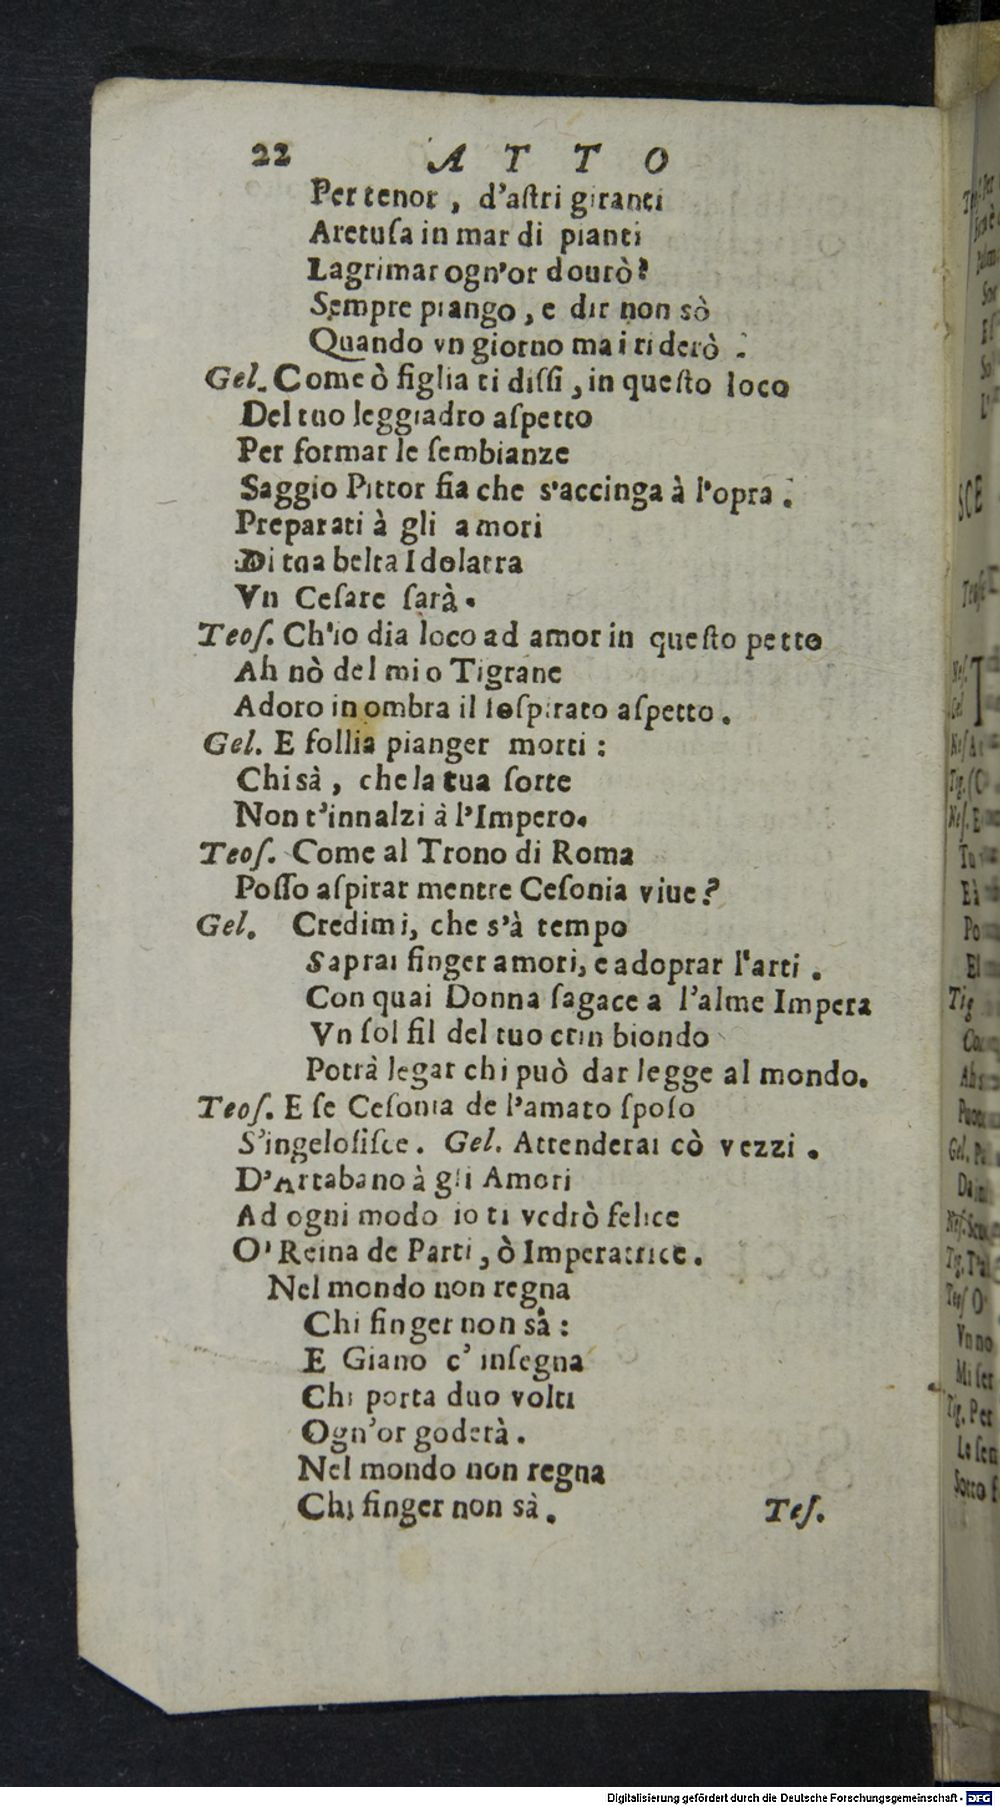 22 ATTO
Per tenor, d'aſtri giranti
Aretuſa in mar di pianti
Lagrimar ogn'or dourò?
Sempre piango, e dir non sò
Quando vn giorno mai riderò.
Gel. Come ò figlia ti diſſi, in queſto loco
Del tuo leggiadro aſpetto
Per formar le ſembianze
Saggio Pittor fia che s'accinga à l'opra.
Preparati à gli amori
Di tua belta Idolatra
Vn Ceſare ſarà.
Teoſ. Ch'io dia loco ad amor in queſto petto
Ah nò del mio Tigrane
Adoro in ombra il ſoſpirato aſpetto.
Gel. E follia pianger morti:
Chi sà, che la tua ſorte
Non t'innalzi à l'Impero.
Teoſ. Come al Trono di Roma
Poſſo aſpirar mentre Ceſonia viue?
Gel. Credimi, che s'à tempo
Saprai finger amori, e adoprar l'arti.
Con quai Donna ſagace a l'alme Impera
Vn ſol fil del tuo crin biondo
Potrà legar chi può dar legge al mondo.
Teoſ. E ſe Ceſonia de l'amato ſpoſo
S'ingeloſiſce. Gel. Attenderai cò vezzi.
D'Artabano à gli Amori
Ad ogni modo io ti vedrò felice
O' Reina de Parti, ò Imperatrice.
Nel mondo non regna
Chi finger non sà:
E Giano c' inſegna
Chi porta duo volti
Ogn'or goderà.
Nel mondo non regna
Chi finger non sà.
Teſ.
Digitalisierung gefördert durch die Deutsche Forschungsgemeinschaft - DFG